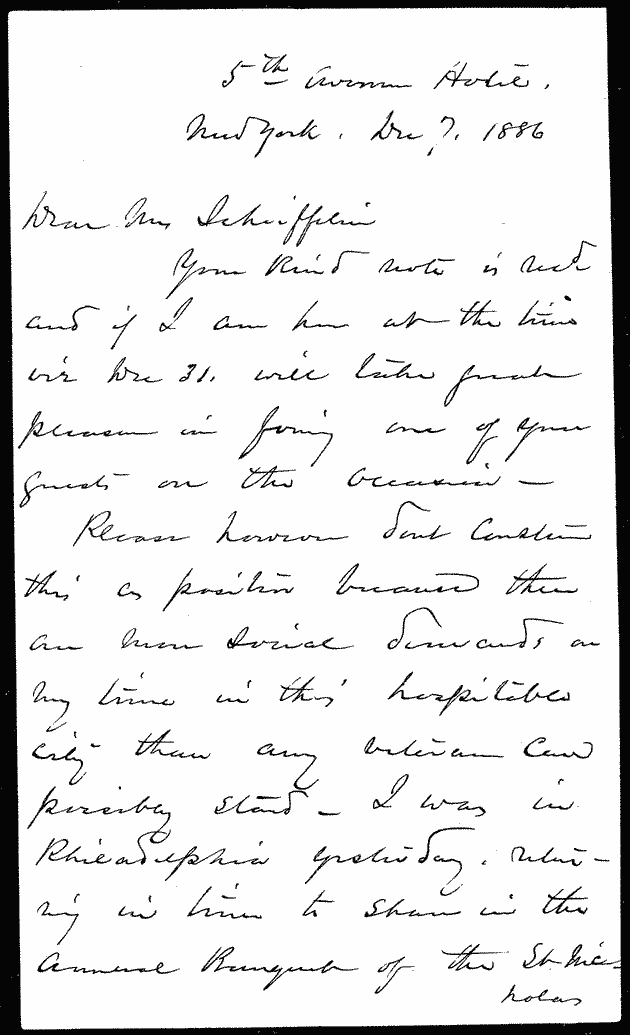 5th Avenue Hotel,
New York, Dec 7, 1886
Dear Mrs Schieffelin
Your kind note is recd
and if I am here at the time
viz Dec 31. will take great
pleasure in forming one of your
guests on the occasion —
Please however dont construe
this as positive because there
are more social demands on
my time in this hospitable
city than any veteran can
possibly stand — I was in
Philadelphia yesterday, retur-
ning in time to share in the
Annual Banquet of the St Nic-
holas